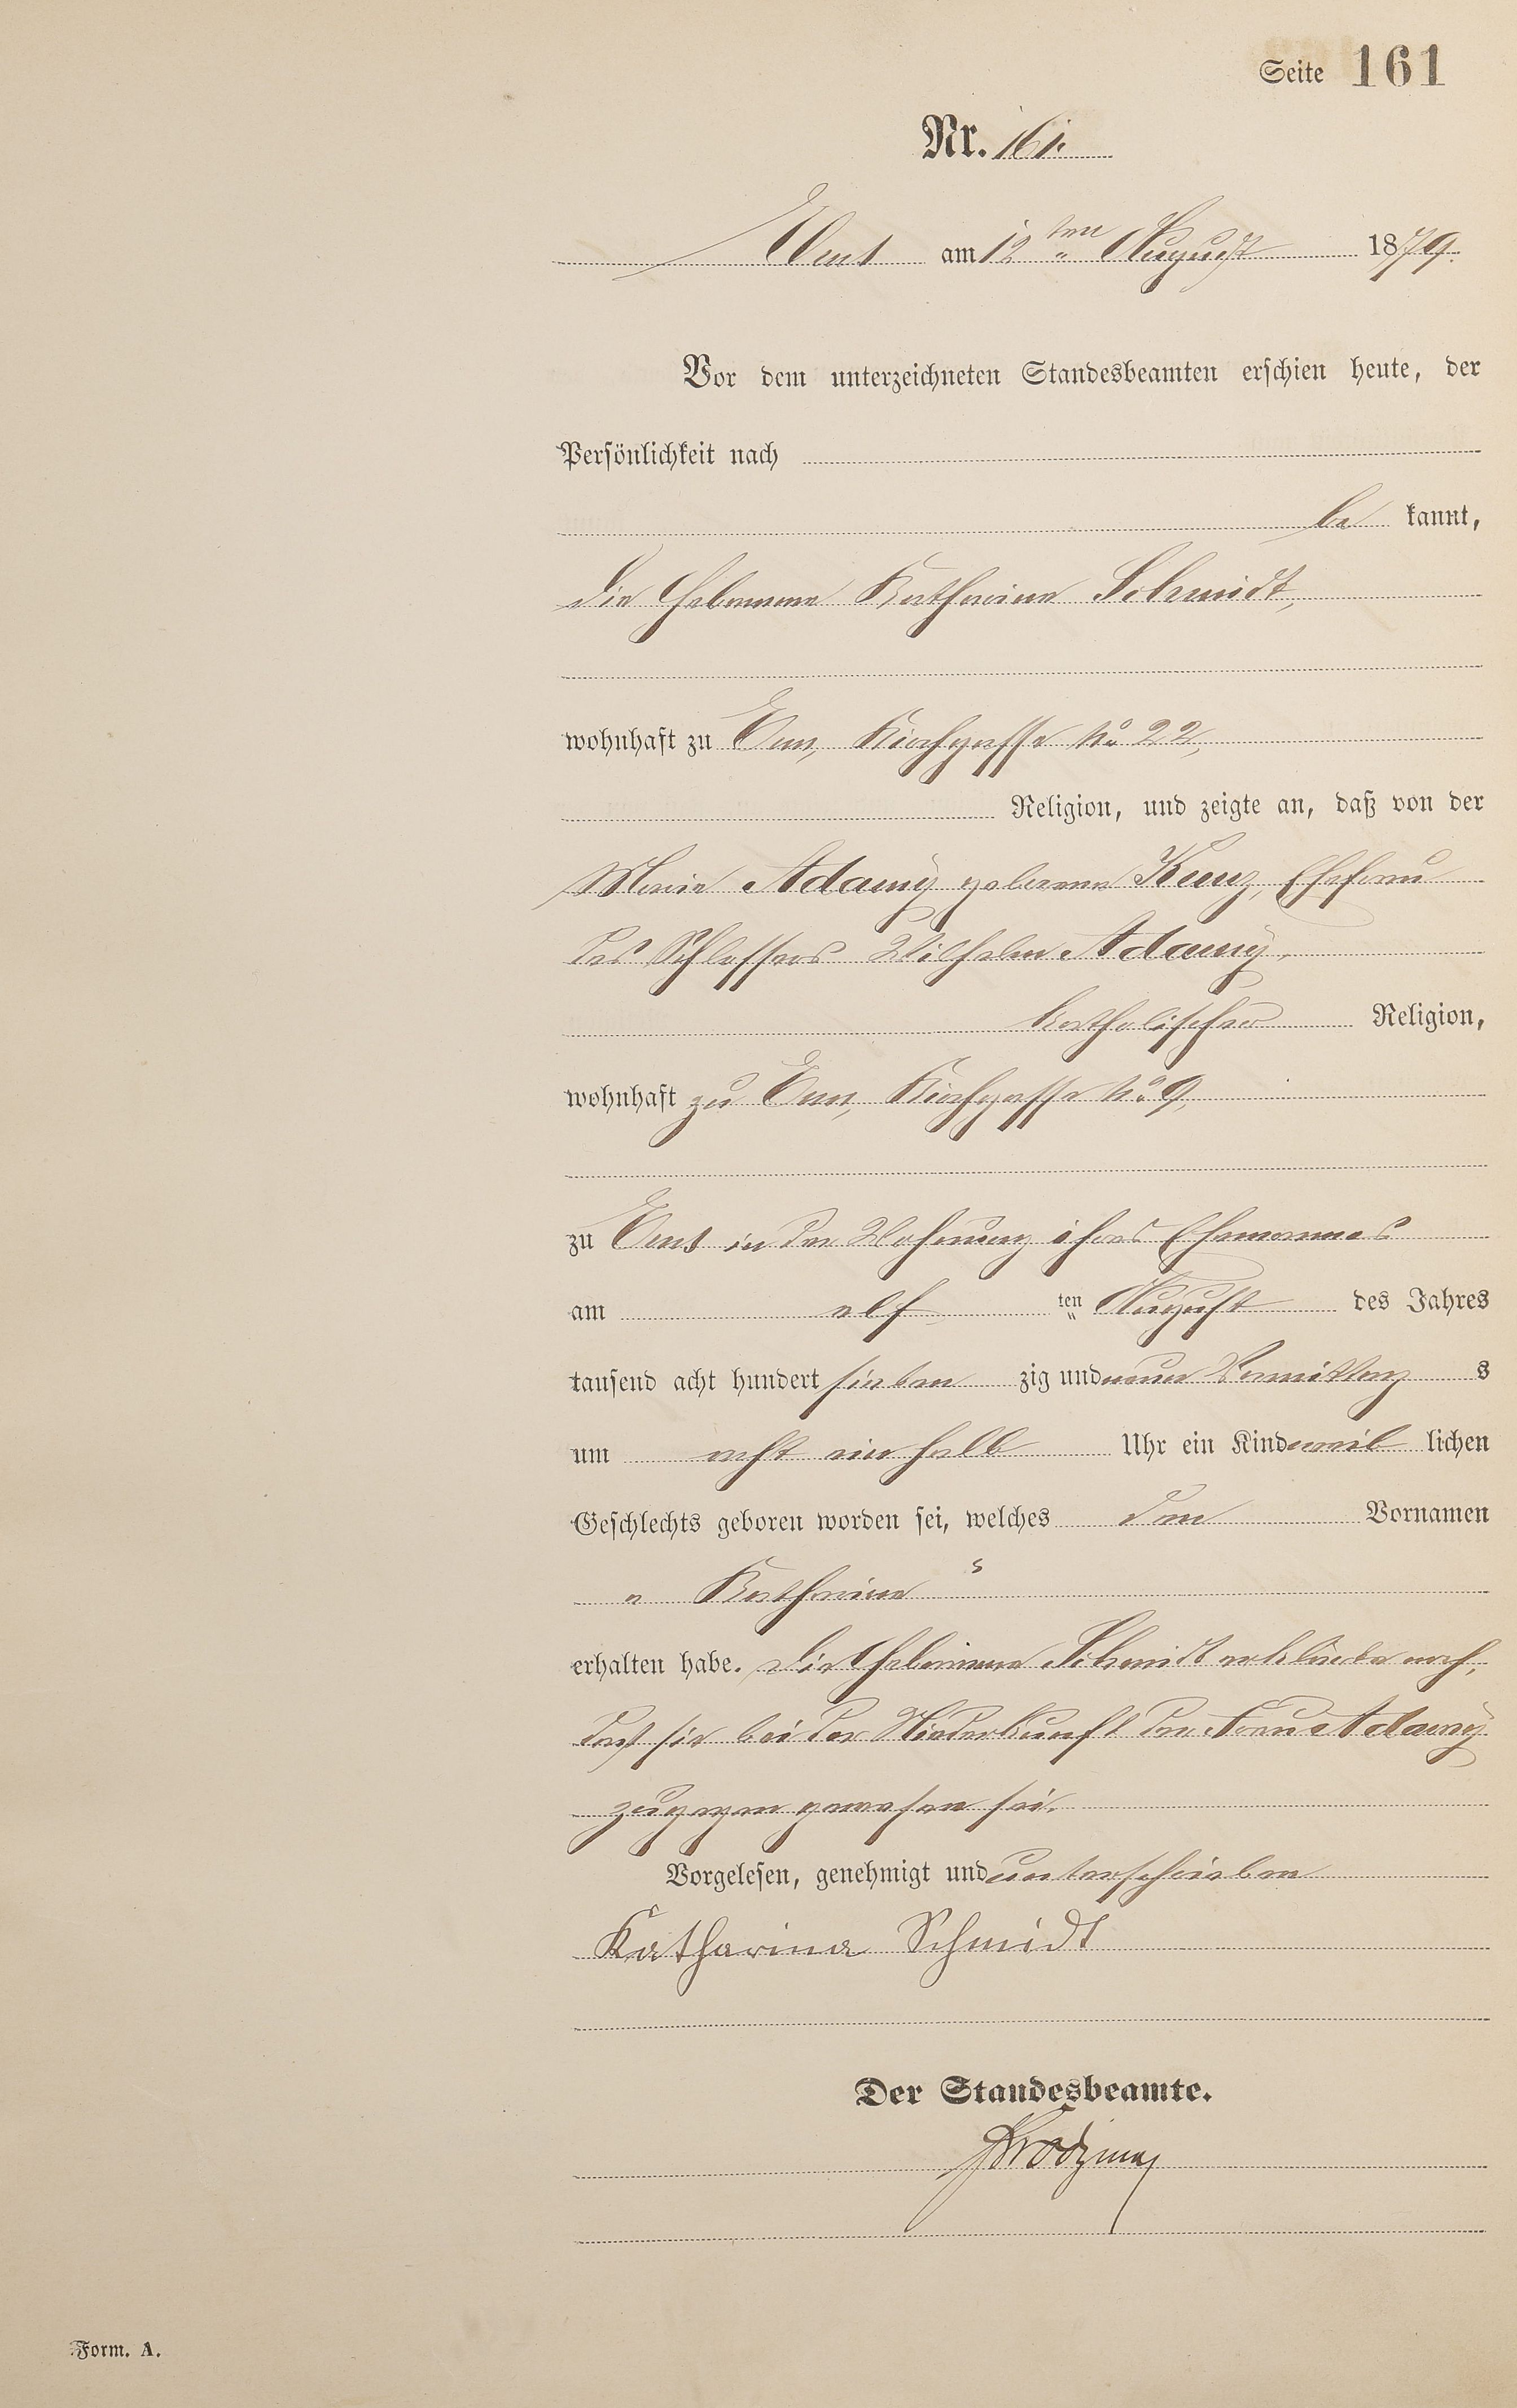 Seite 161
Nr. 161.
Ems am 12ten August 1879.
Vor dem unterzeichneten Standesbeamten erschien heute, der
Persönlichkeit nach
be kannt,
die Hebamme Katharine Schmidt,
wohnhaft zu Ems, Kirchgasse No 22,
Religion, und zeigte an, daß von der
Marie Adamÿ geborene Kunz, Ehefrau
des Schlossers Wilhelm Adamÿ,
katholischer Religion,
wohnhaft zu Ems, Kirchgasse No 9,
zu Ems in der Wohnung ihres Ehemannes
am elf ten August des Jahres
tausend acht hundert sieben zig und neun Vormittag s
um acht ein halb Uhr ein Kind weib lichen
Geschlechts geboren worden sei, welches den Vornamen
„ Katharine “
erhalten habe. Die Hebamme Schmidt erklärte noch,
daß sie bei der Niederkunft der Frau Adamÿ
zugegen gewesen sei.
Vorgelesen, genehmigt und unterschrieben
Katharina Schmidt
Der Standesbeamte.
Form. A.